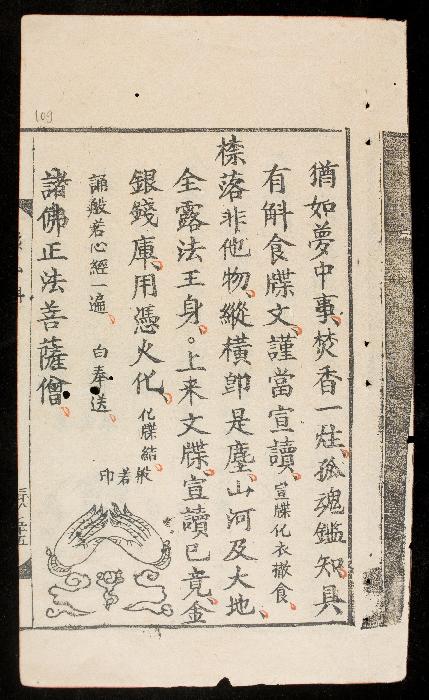 猶如夢中事、焚香一炷、孤魂鑑知、具
有斛食牒文、謹當宣讀、宣牒化衣撒食、
樸落非他物、縱橫卽是塵、山河及大地、
全露法王身。上来文牒、宣讀已竟、金
銀錢庫、用憑火化、化牒結、
般若印
誦般若心經一遍、白奉送、
諸佛正法菩薩僧、
109